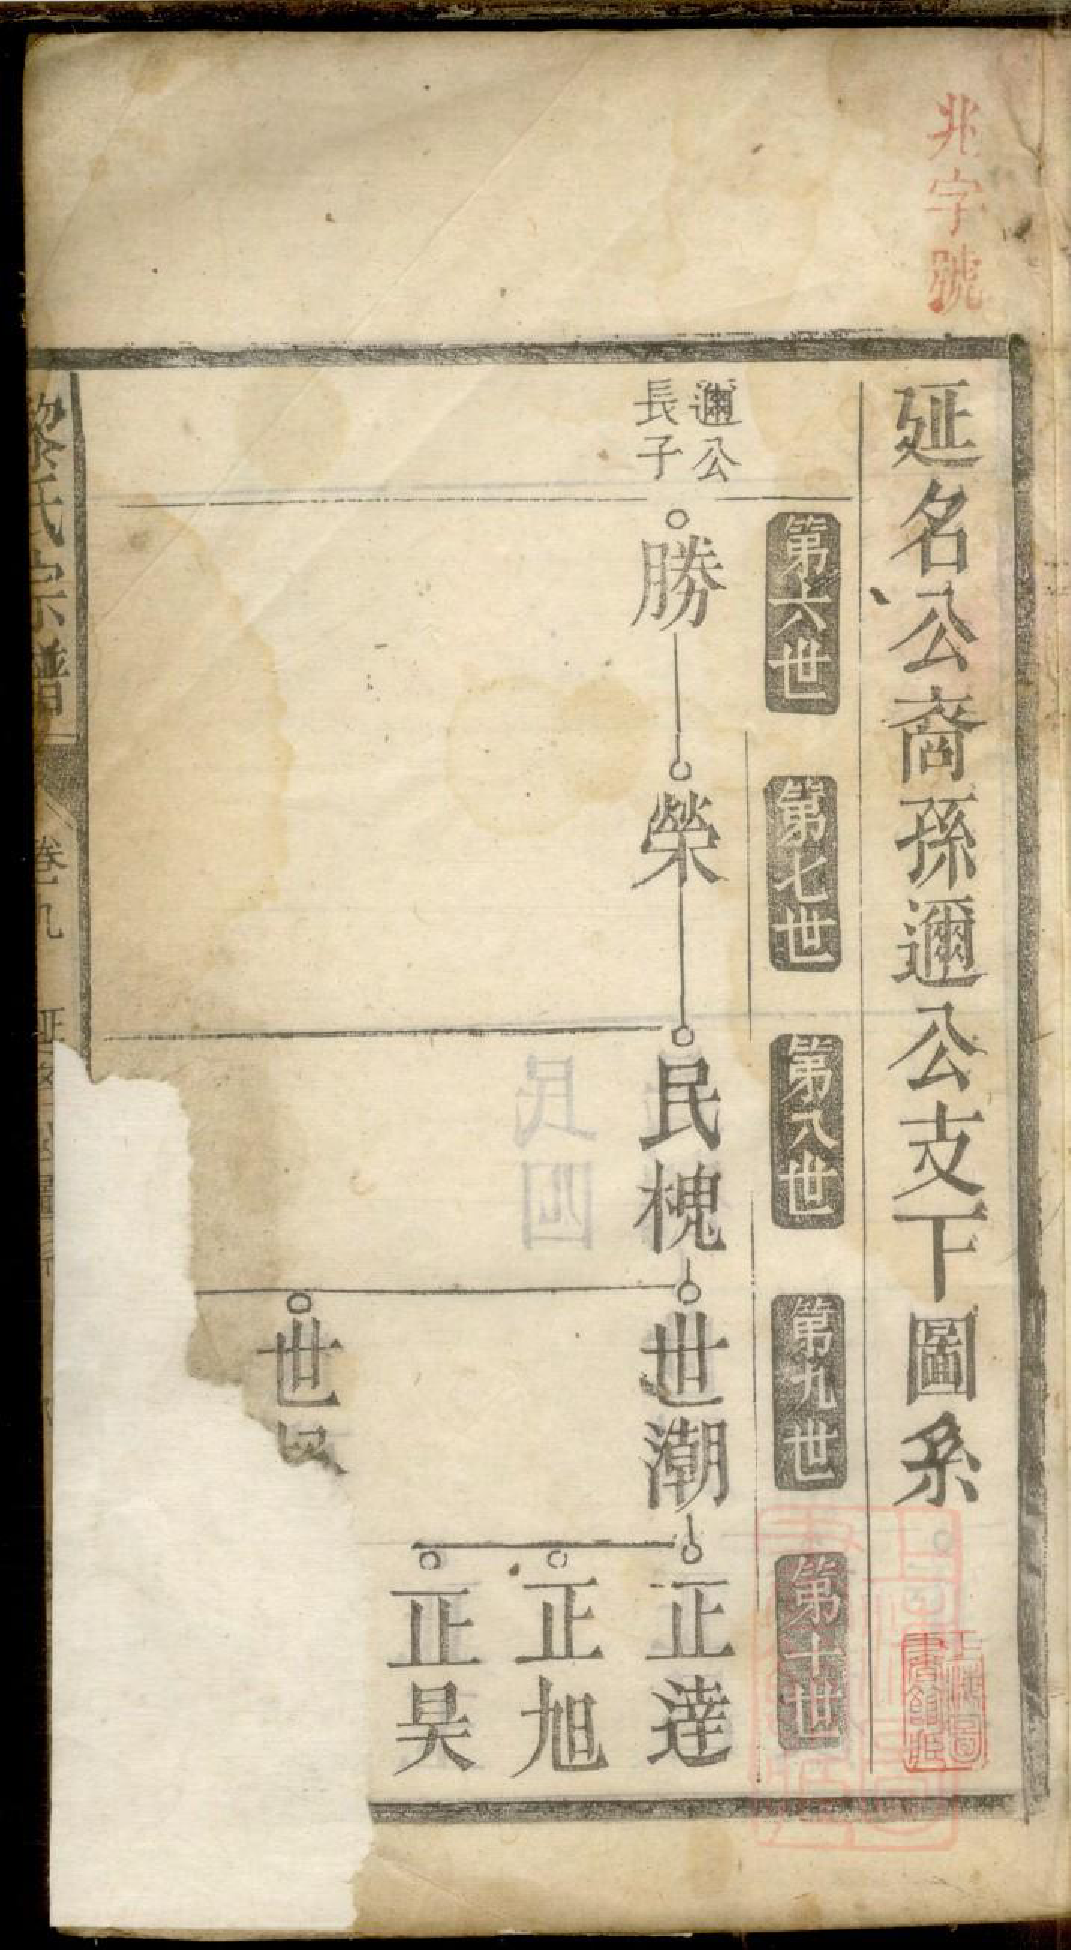 兆字號
延名公裔孫邇公支下圖系
第六世
第七世
第八世
第九世
第十世
邇公
長子
勝
榮
民槐
世潮
正達
正旭
正昊
世
黎氏宗譜
卷九
上海圖
書館藏